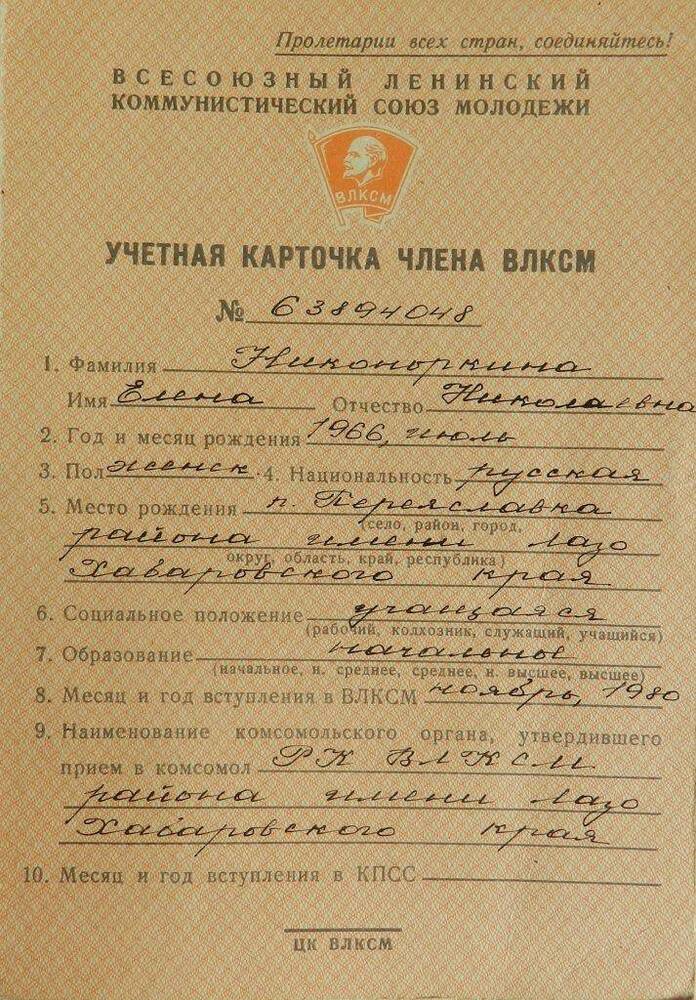 Пролетарии всех стран, соединяйтесь!
ВСЕСОЮЗНЫЙ ЛЕНИНСКИЙ
КОММУНИСТИЧЕСКИЙ СОЮЗ МОЛОДЕЖИ
ВЛКСМ
УЧЕТНАЯ КАРТОЧКА ЧЛЕНА ВЛКСМ
№ 63894048
1. Фамилия Никоноркина
Имя Елена Отчество Николаевна
2. Год и месяц рождения 1966, июль
3. Пол женск. 4. Национальность русская
5. Место рождения п. Переяславка
(село, район, город,
района имени Лазо
округ, область, край, республика)
Хабаровского края
6. Социальное положение учащаяся
(рабочий, колхозник, служащий, учащийся)
7. Образование начальное
(начальное, н. среднее, среднее, н. высшее, высшее)
8. Месяц и год вступления в ВЛКСМ ноябрь, 1980
9. Наименование комсомольского органа, утвердившего
прием в комсомол РК ВЛКСМ
района имени Лазо
Хабаровского края
10. Месяц и год вступления в КПСС
ЦК ВЛКСМ